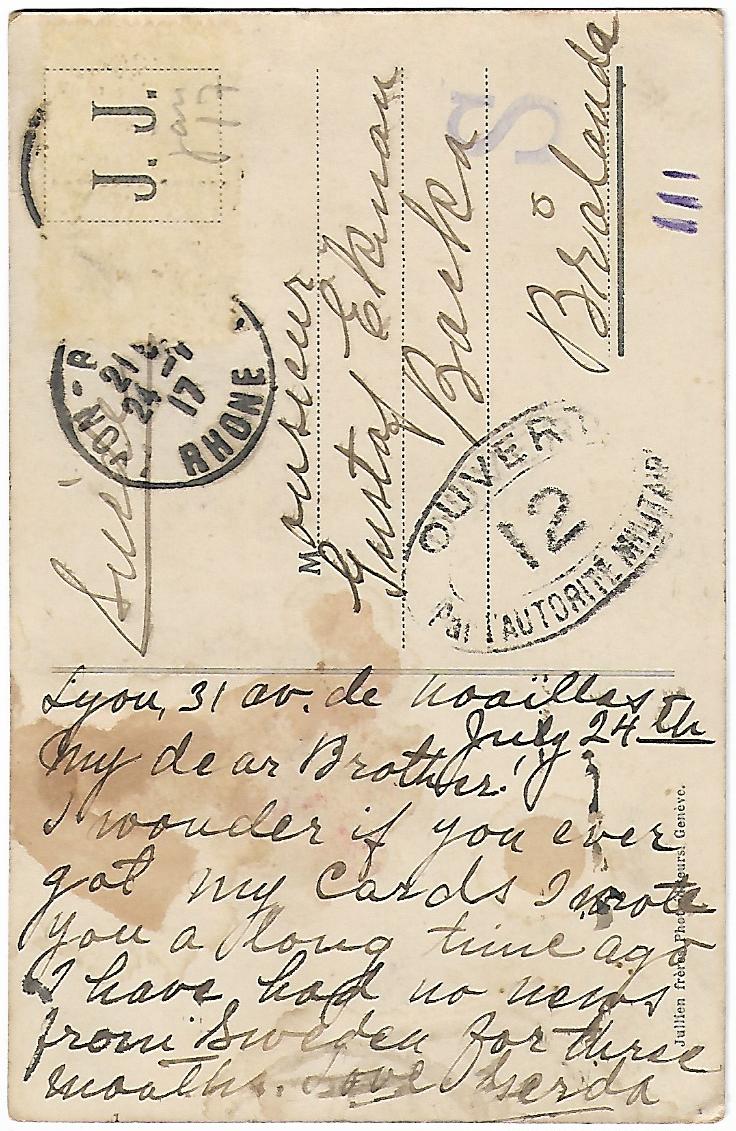 J. J.
Jan 17
RHONE
21
24 - 7
17
Suède
Monsieur
Gustaf Ekman
Backa
Brålanda
S
OUVERT
12
Par L'AUTORITÉ MILITAIRE
Lyon, 31 av. de Noailles
July 24th
My dear Brother!
I wonder if you ever
got my cards I wrote
you a long time ago
I have had no news
from Sweden for three
months. Love Gerda
Jullien frères Photo Genève.